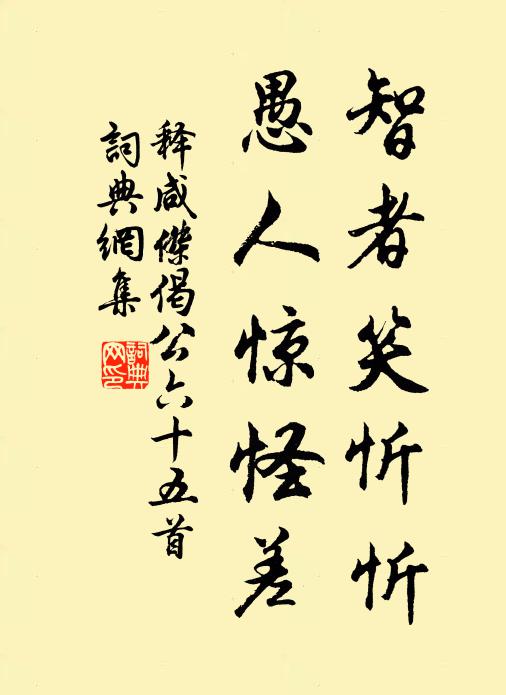 智者笑忻忻
愚人惊怪差
释咸傑偈公六十五首
詞典網集
詞典网印